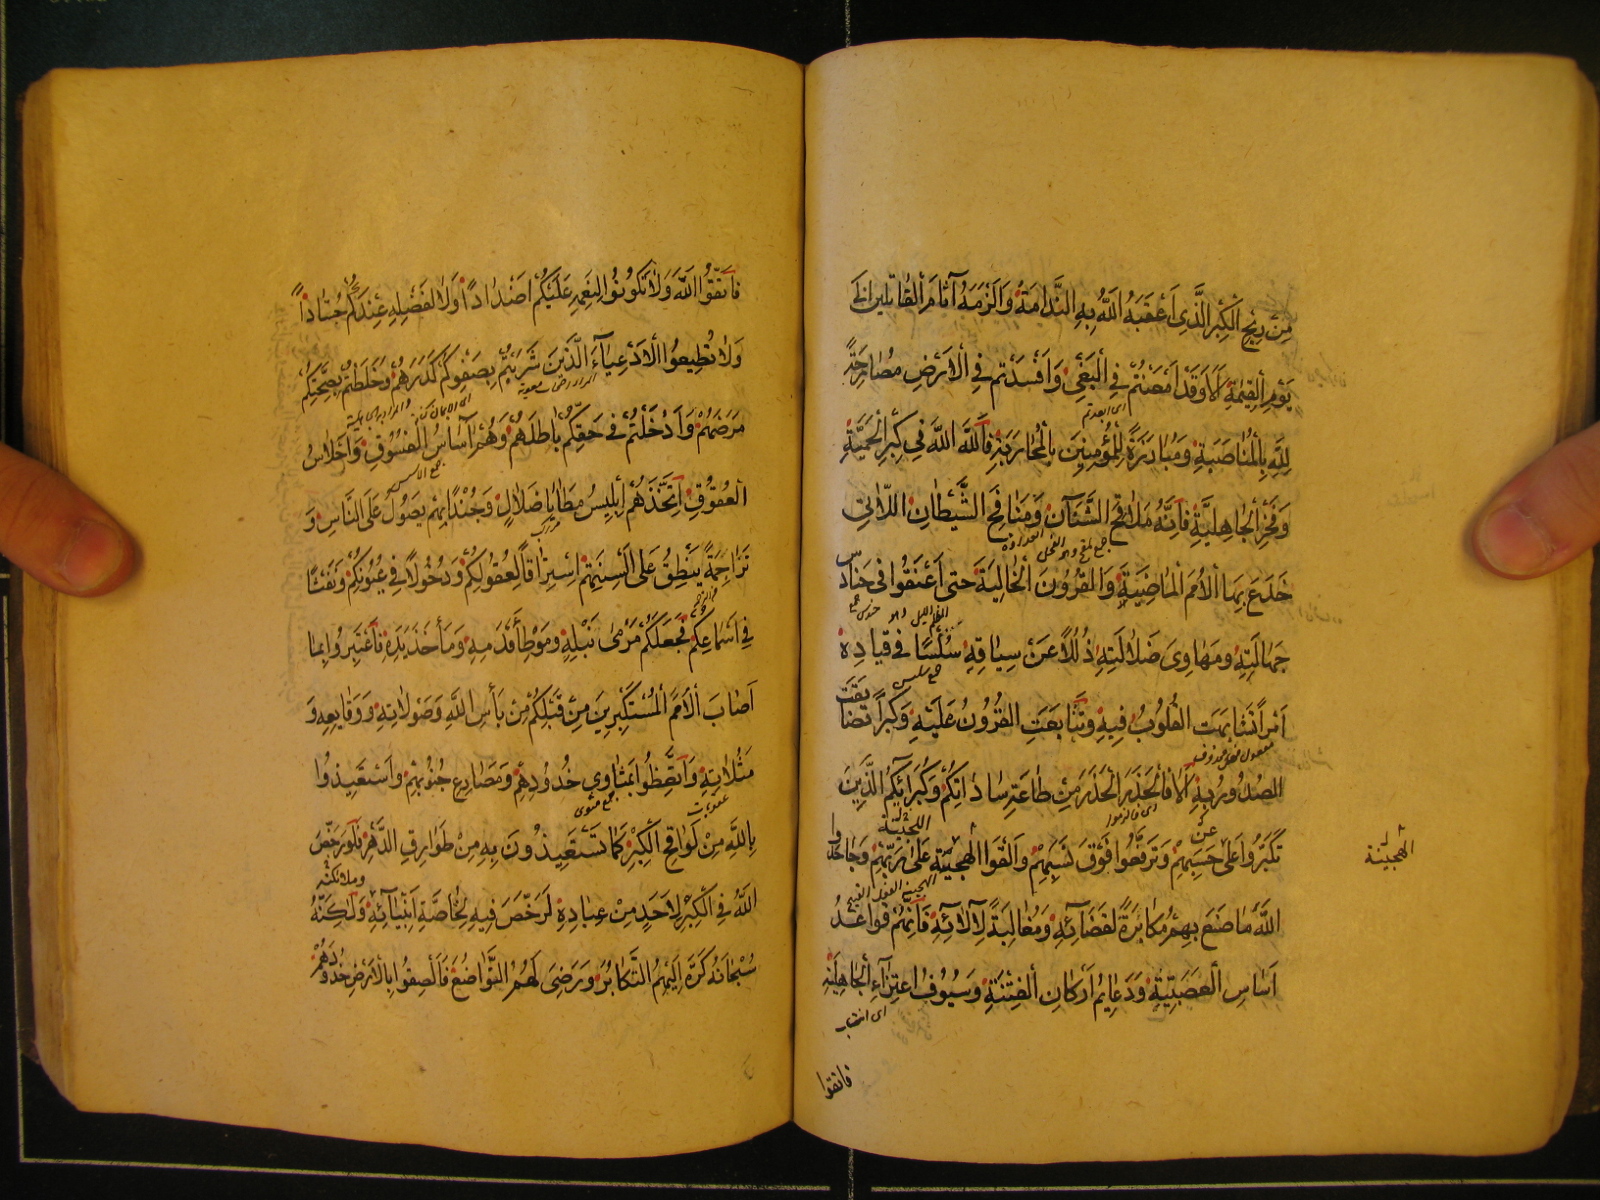 مِنْ رِيحِ الْكِبْرِ الَّذِي اَعْقَبَهُ اللّٰهُ بِهِ النَّدَامَةَ وَاَلْزَمَهُ آثَامَ الْقَاتِلِينَ اِلٰى
يَوْمِ الْقِيٰمَةِ اَلَا وَقَدْ اَمْعَنْتُمْ فِي الْبَغْيِ وَاَفْسَدْتُمْ فِي الْاَرْضِ مُصَارَحَةً
اى ابعدتم
لِلّٰهِ بِالْمُنَاصَبَةِ وَمُبَارَزَةً لِلْمُؤْمِنِينَ بِالْمُحَارَبَةِ فَاللّٰهَ اللّٰهَ فِي كِبْرِ الْحَمِيَّةِ
وَفَخْرِ الْجَاهِلِيَّةِ فَاِنَّهُ مَلَاقِحُ الشَّنَآنِ وَمَنَافِخُ الشَّيْطَانِ اللَّاتِي
جمع ملقح وهو الفحل
العداوة
خَدَعَ بِهَا الْاُمَمَ الْمَاضِيَةَ وَالْقُرُونَ الْخَالِيَةَ حَتّٰى اَعْنَقُوا فِي حَنَادِسِ
جَهَالَتِهِ وَمَهَاوِيَ ضَلَالَتِهِ ذُلُلًا عَنْ سِيَاقِهِ سُلُسًا فِي قِيَادِهِ
جمع سلس
اَمْرًا تَشَابَهَتِ الْقُلُوبُ فِيهِ وَتَتَابَعَتِ الْقُرُونُ عَلَيْهِ وَكِبْرًا تَضَايَقَتِ
الصُّدُورُ بِهِ اَلَا فَالْحَذَرَ الْحَذَرَ مِنْ طَاعَةِ سَادَاتِكُمْ وَكُبَرَائِكُمُ الَّذِينَ
تَكَبَّرُوا عَلٰى حَسَبِهِمْ وَتَرَفَّعُوا فَوْقَ نَسَبِهِمْ وَاَلْقَوُا الْهَجِينَةَ عَلٰى رَبِّهِمْ وَجَاحَدُوا
عَنْ
الهجينة
اللّٰهَ مَا صَنَعَ بِهِمْ مُكَابَرَةً لِقَضَائِهِ وَمُغَالَبَةً لِآلَائِهِ فَاِنَّهُمْ قَوَاعِدُ
اَسَاسِ الْعَصَبِيَّةِ وَدَعَائِمُ اَرْكَانِ الْفِتْنَةِ وَسُيُوفُ اعْتِزَاءِ الْجَاهِلِيَّةِ
اى انتساب
فاتقوا
فَاتَّقُوا اللّٰهَ وَلَا تَكُونُوا لِنِعَمِهِ عَلَيْكُمْ اَضْدَادًا وَلَا لِفَضْلِهِ عِنْدَكُمْ حُسَّادًا
وَلَا تُطِيعُوا الْاَدْعِيَاءَ الَّذِينَ شَرِبْتُمْ بِصَفْوِكُمْ كَدَرَهُمْ وَخَلَطْتُمْ بِصِحَّتِكُمْ
مَرَضَهُمْ وَاَدْخَلْتُمْ فِي حَقِّكُمْ بَاطِلَهُمْ وَهُمْ آسَاسُ الْفُسُوقِ وَاَحْلَاسُ
جمع الاس
الْعُقُوقِ اتَّخَذَهُمْ اِبْلِيسُ مَطَايَا ضَلَالٍ وَجُنْدًا بِهِمْ يَصُولُ عَلَى النَّاسِ وَ
تَرَاجِمَةً يَنْطِقُ عَلٰى اَلْسِنَتِهِمْ اسْتِرَاقًا لِعُقُولِكُمْ وَدُخُولًا فِي عُيُونِكُمْ وَنَفْثًا
فِي اَسْمَاعِكُمْ فَجَعَلَكُمْ مَرْمٰى نَبْلِهِ وَمَوْطِأَ قَدَمِهِ وَمَأْخَذَ يَدِهِ فَاعْتَبِرُوا بِمَا
اَصَابَ الْاُمَمَ الْمُسْتَكْبِرِينَ مِنْ قَبْلِكُمْ مِنْ بَأْسِ اللّٰهِ وَصَوْلَاتِهِ وَوَقَايِعِهِ وَ
مَثُلَاتِهِ وَاتَّعِظُوا بِمَثَاوِي خُدُودِهِمْ وَمَصَارِعِ جُنُوبِهِمْ وَاسْتَعِيذُوا
عقوبات
جمع مثوى
بِاللّٰهِ مِنْ لَوَاقِحِ الْكِبْرِ كَمَا تَسْتَعِيذُونَ بِهِ مِنْ طَوَارِقِ الدَّهْرِ فَلَوْ رَخَّصَ
وملائكته
اللّٰهُ فِي الْكِبْرِ لِاَحَدٍ مِنْ عِبَادِهِ لَرَخَّصَ فِيهِ لِخَاصَّةِ اَنْبِيَائِهِ وَلٰكِنَّهُ
سُبْحَانَهُ كَرَّهَ اِلَيْهِمُ التَّكَابُرَ وَرَضِيَ لَهُمُ التَّوَاضُعَ فَاَلْصَقُوا بِالْاَرْضِ خُدُودَهُمْ